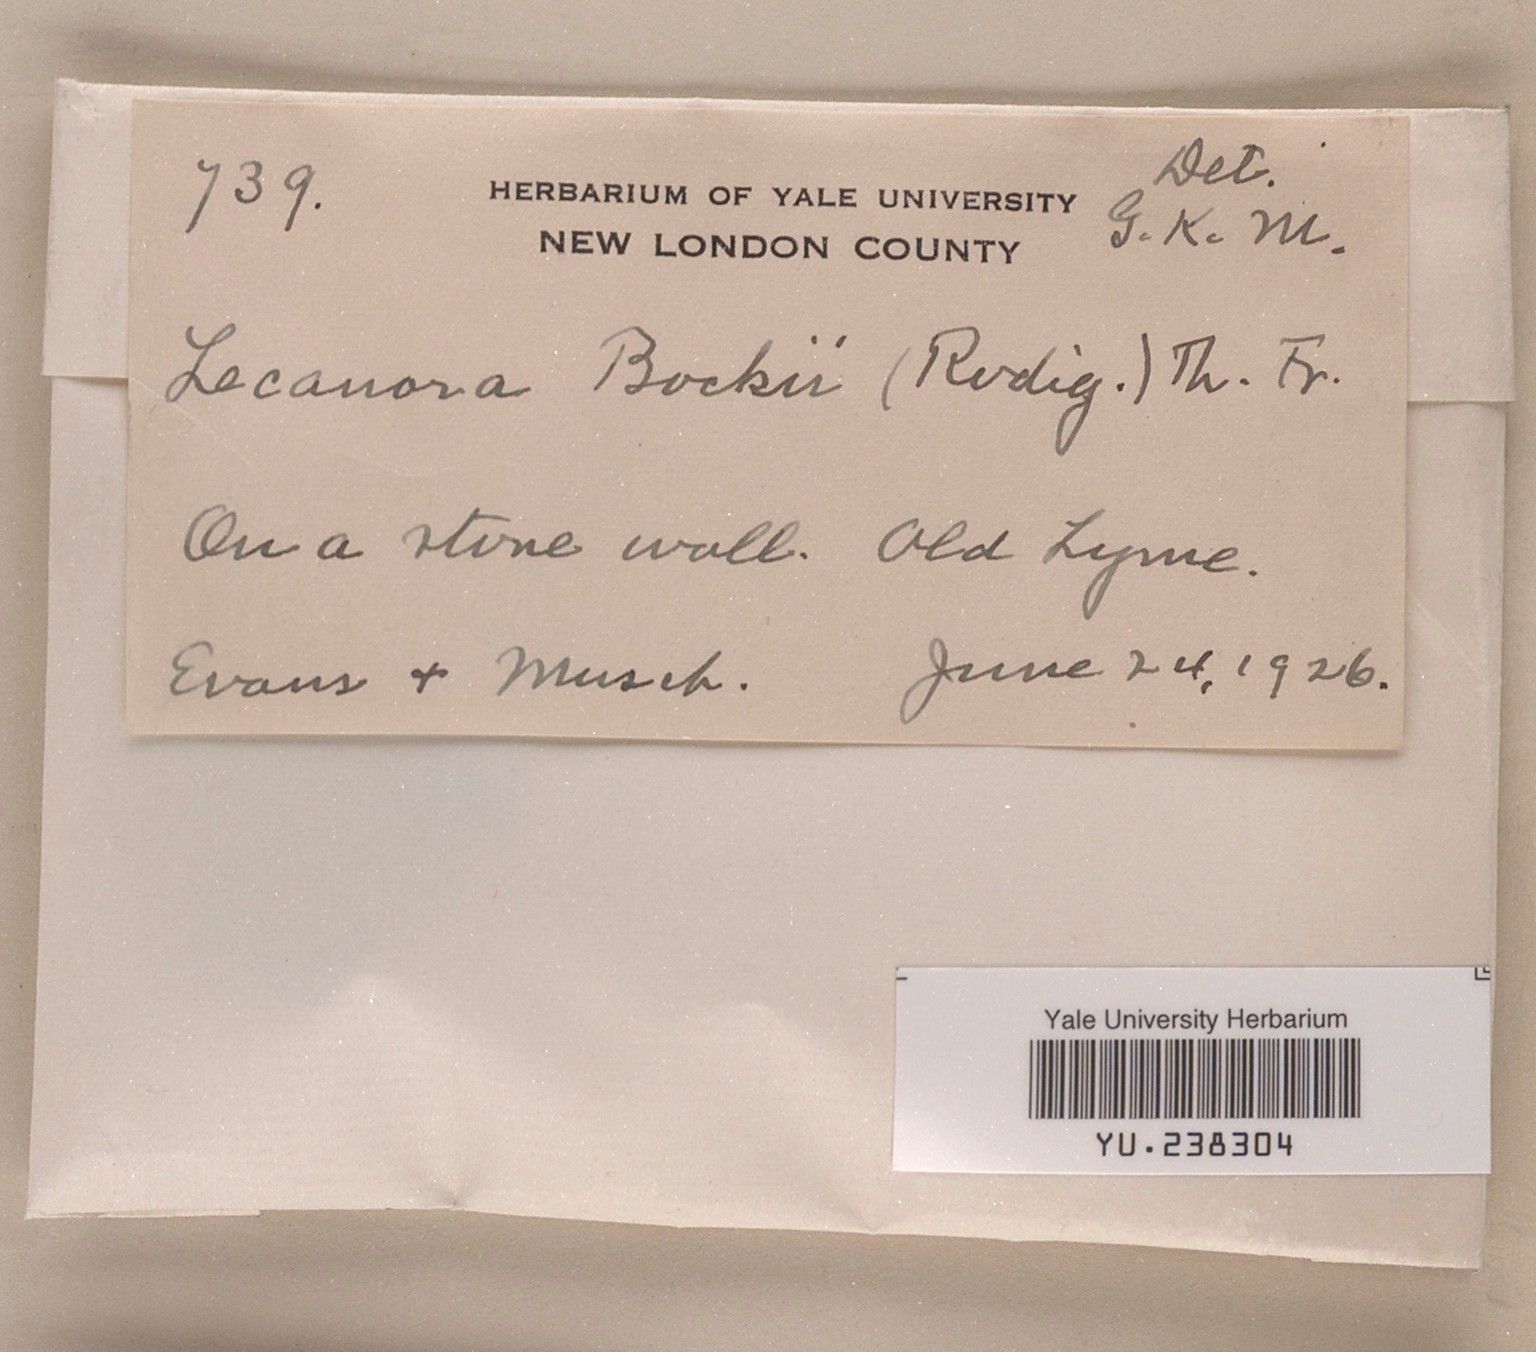 739.
HERBARIUM OF YALE UNIVERSITY
NEW LONDON COUNTY
Det.
G. K. M.
Lecanora Bockii (Rodig.) Th. Fr.
On a stone wall. Old Lyme.
Evans + Musch. June 24, 1926.
Yale University Herbarium
YU.238304